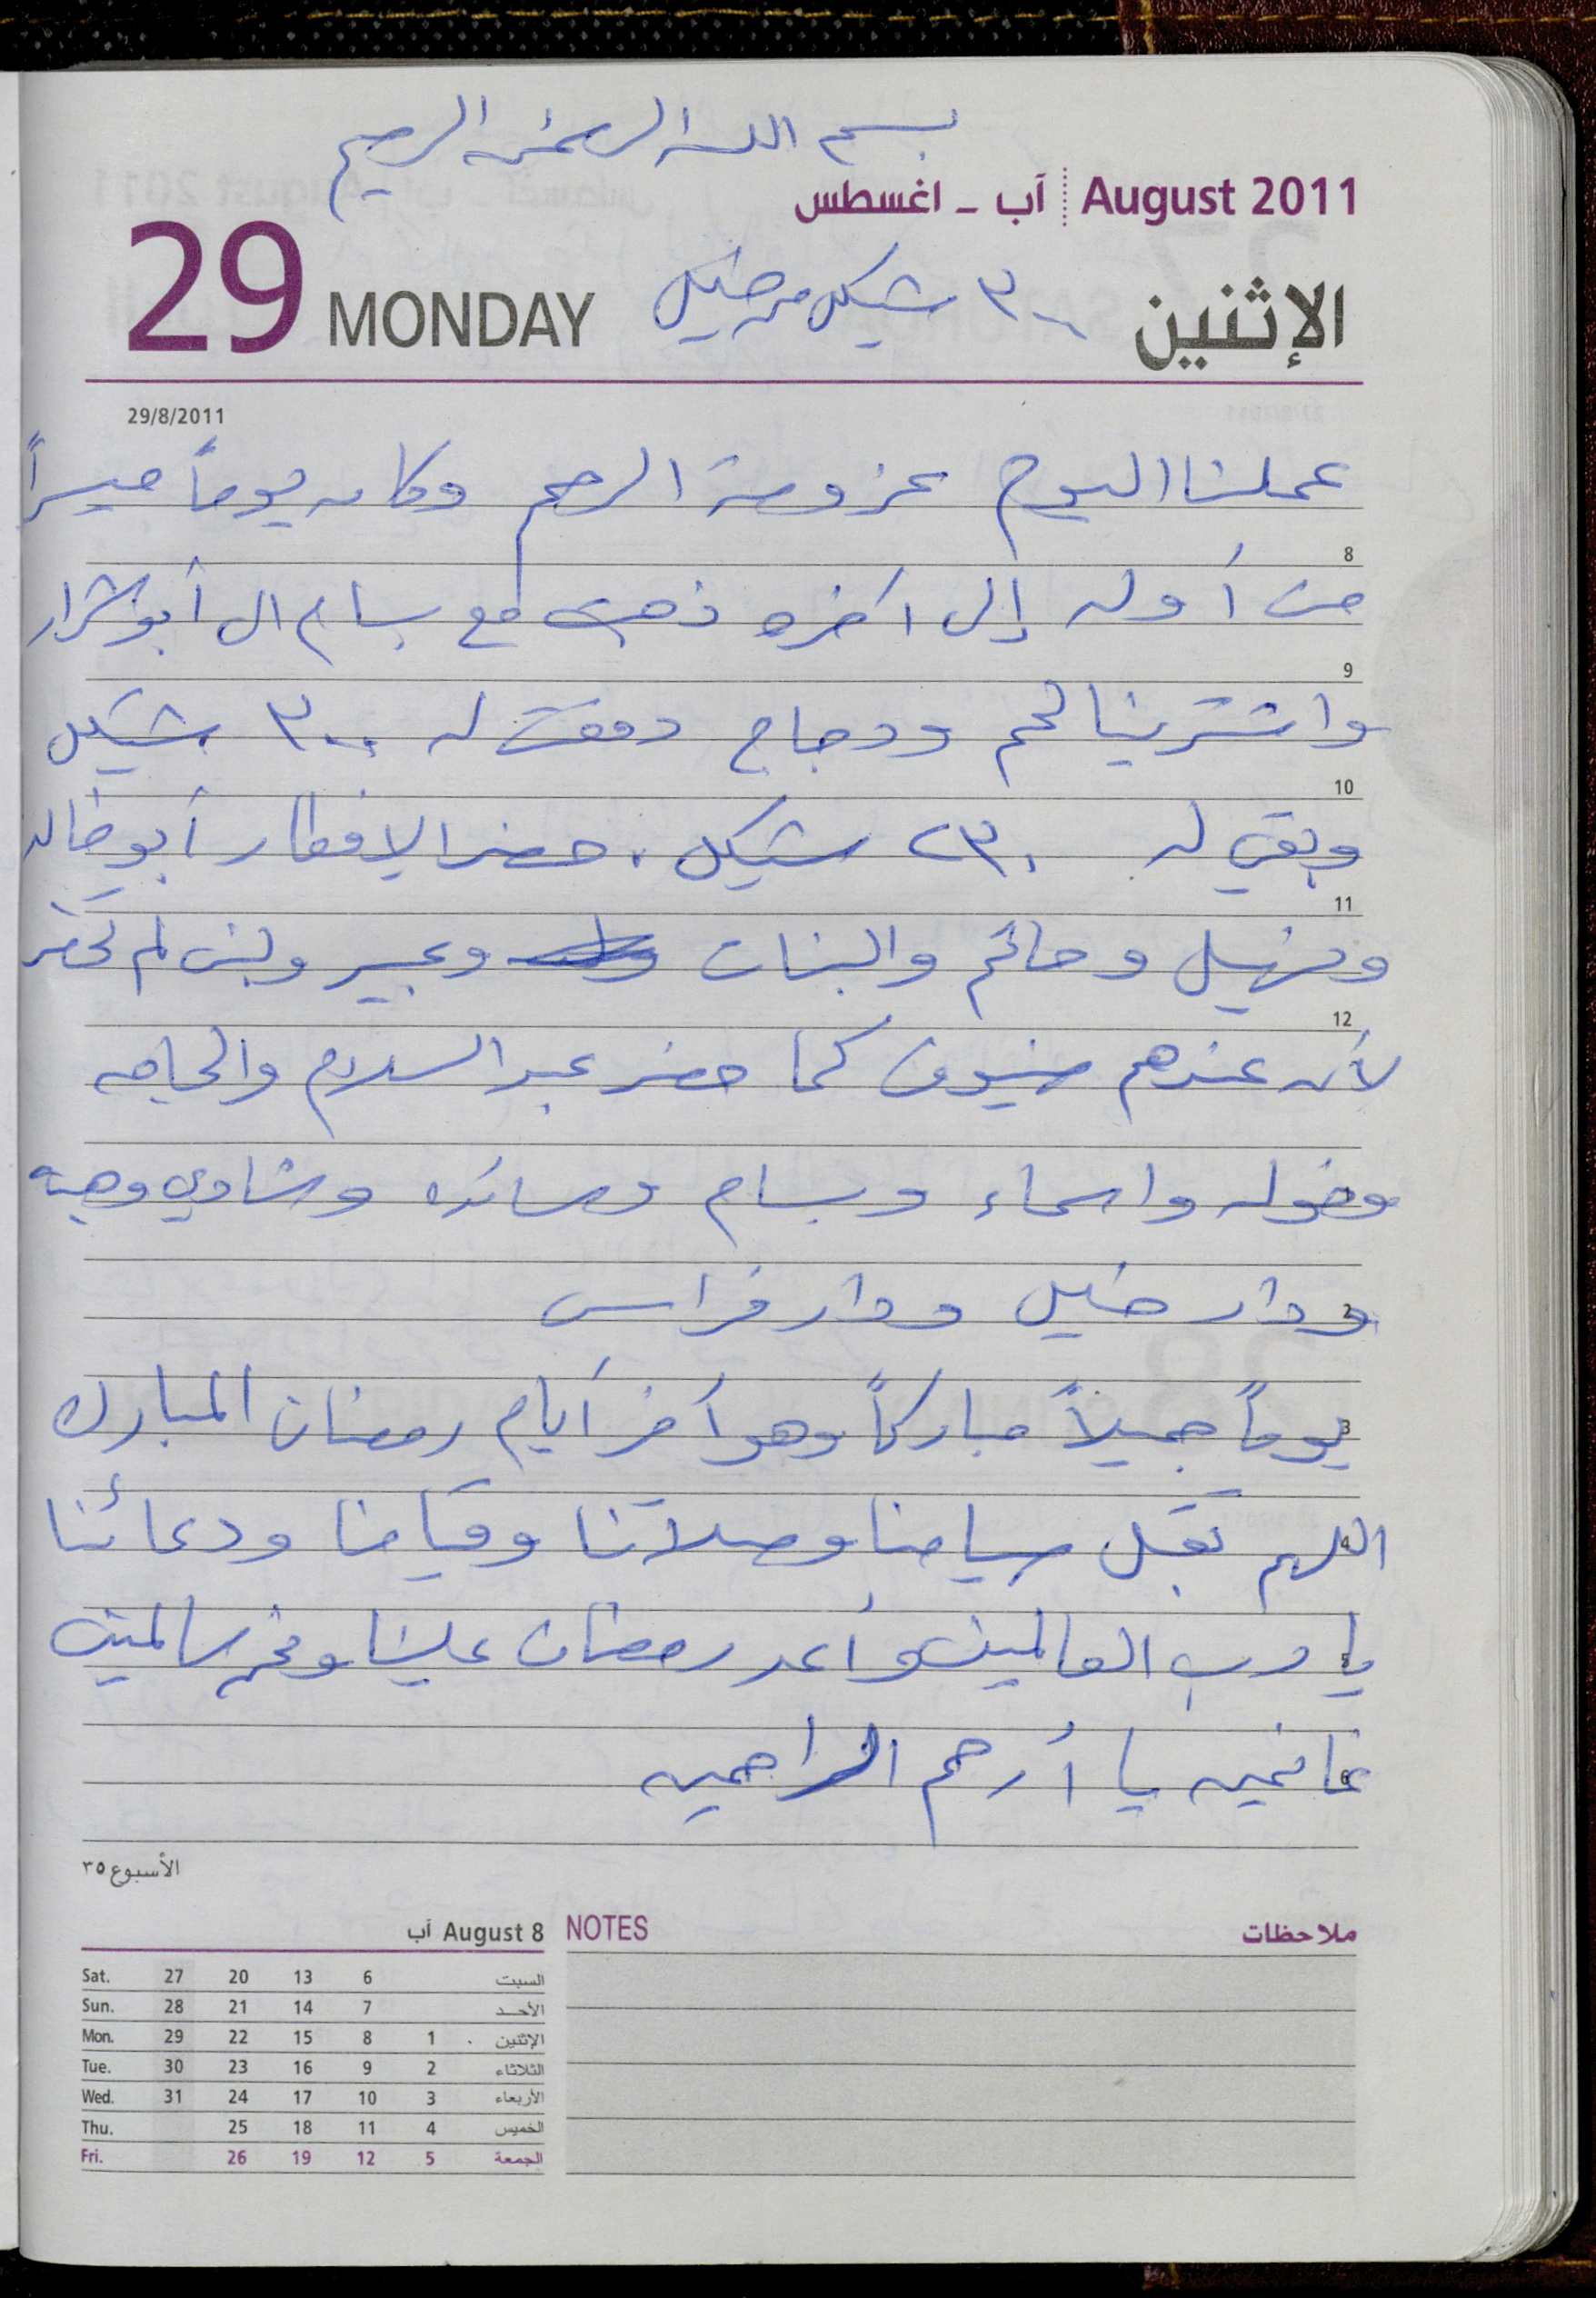 بسم الله الرحمن الرحيم
August 2011 آب - اغسطس
29 MONDAY ٣٠٠ شيكل من خليل الإثنين
29/8/2011
عملنا اليوم عزومة الرحم وكان يوماً ميسراً
8
من أوله إلى آخره ذهبت مع بسام الى أبو شرار
9
واشترينا لحم ودجاج دفعت له ٣٠٠ شيكل
10
وبقي له ٢٣٠ شيكل . حضر الإفطار أبو خالد
11
وسهيل وحاتم والبنات وعبير ولبنى لم تحضر
12
لأن عندهم ضيوف كما حضر عبد السلام والحاجه
وخوله واسماء وبسام وسائده وشادي وهبه
ودار خليل ودار فراس
يوماً جميلاً مباركاً وهو آخر أيام رمضان المبارك
اللهم تقبل صيامنا وصلاتنا وقيامنا ودعائنا
يا رب العالمين وأعد رمضان علينا ونحن سالمين
غانمين يا أرحم الراحمين
الأسبوع ٣٥
August 8 آب NOTES ملاحظات
Sat. 27 20 13 6 السبت
Sun. 28 21 14 7 الأحد
Mon. 29 22 15 8 1 الإثنين
Tue. 30 23 16 9 2 الثلاثاء
Wed. 31 24 17 10 3 الأربعاء
Thu. 25 18 11 4 الخميس
Fri. 26 19 12 5 الجمعة